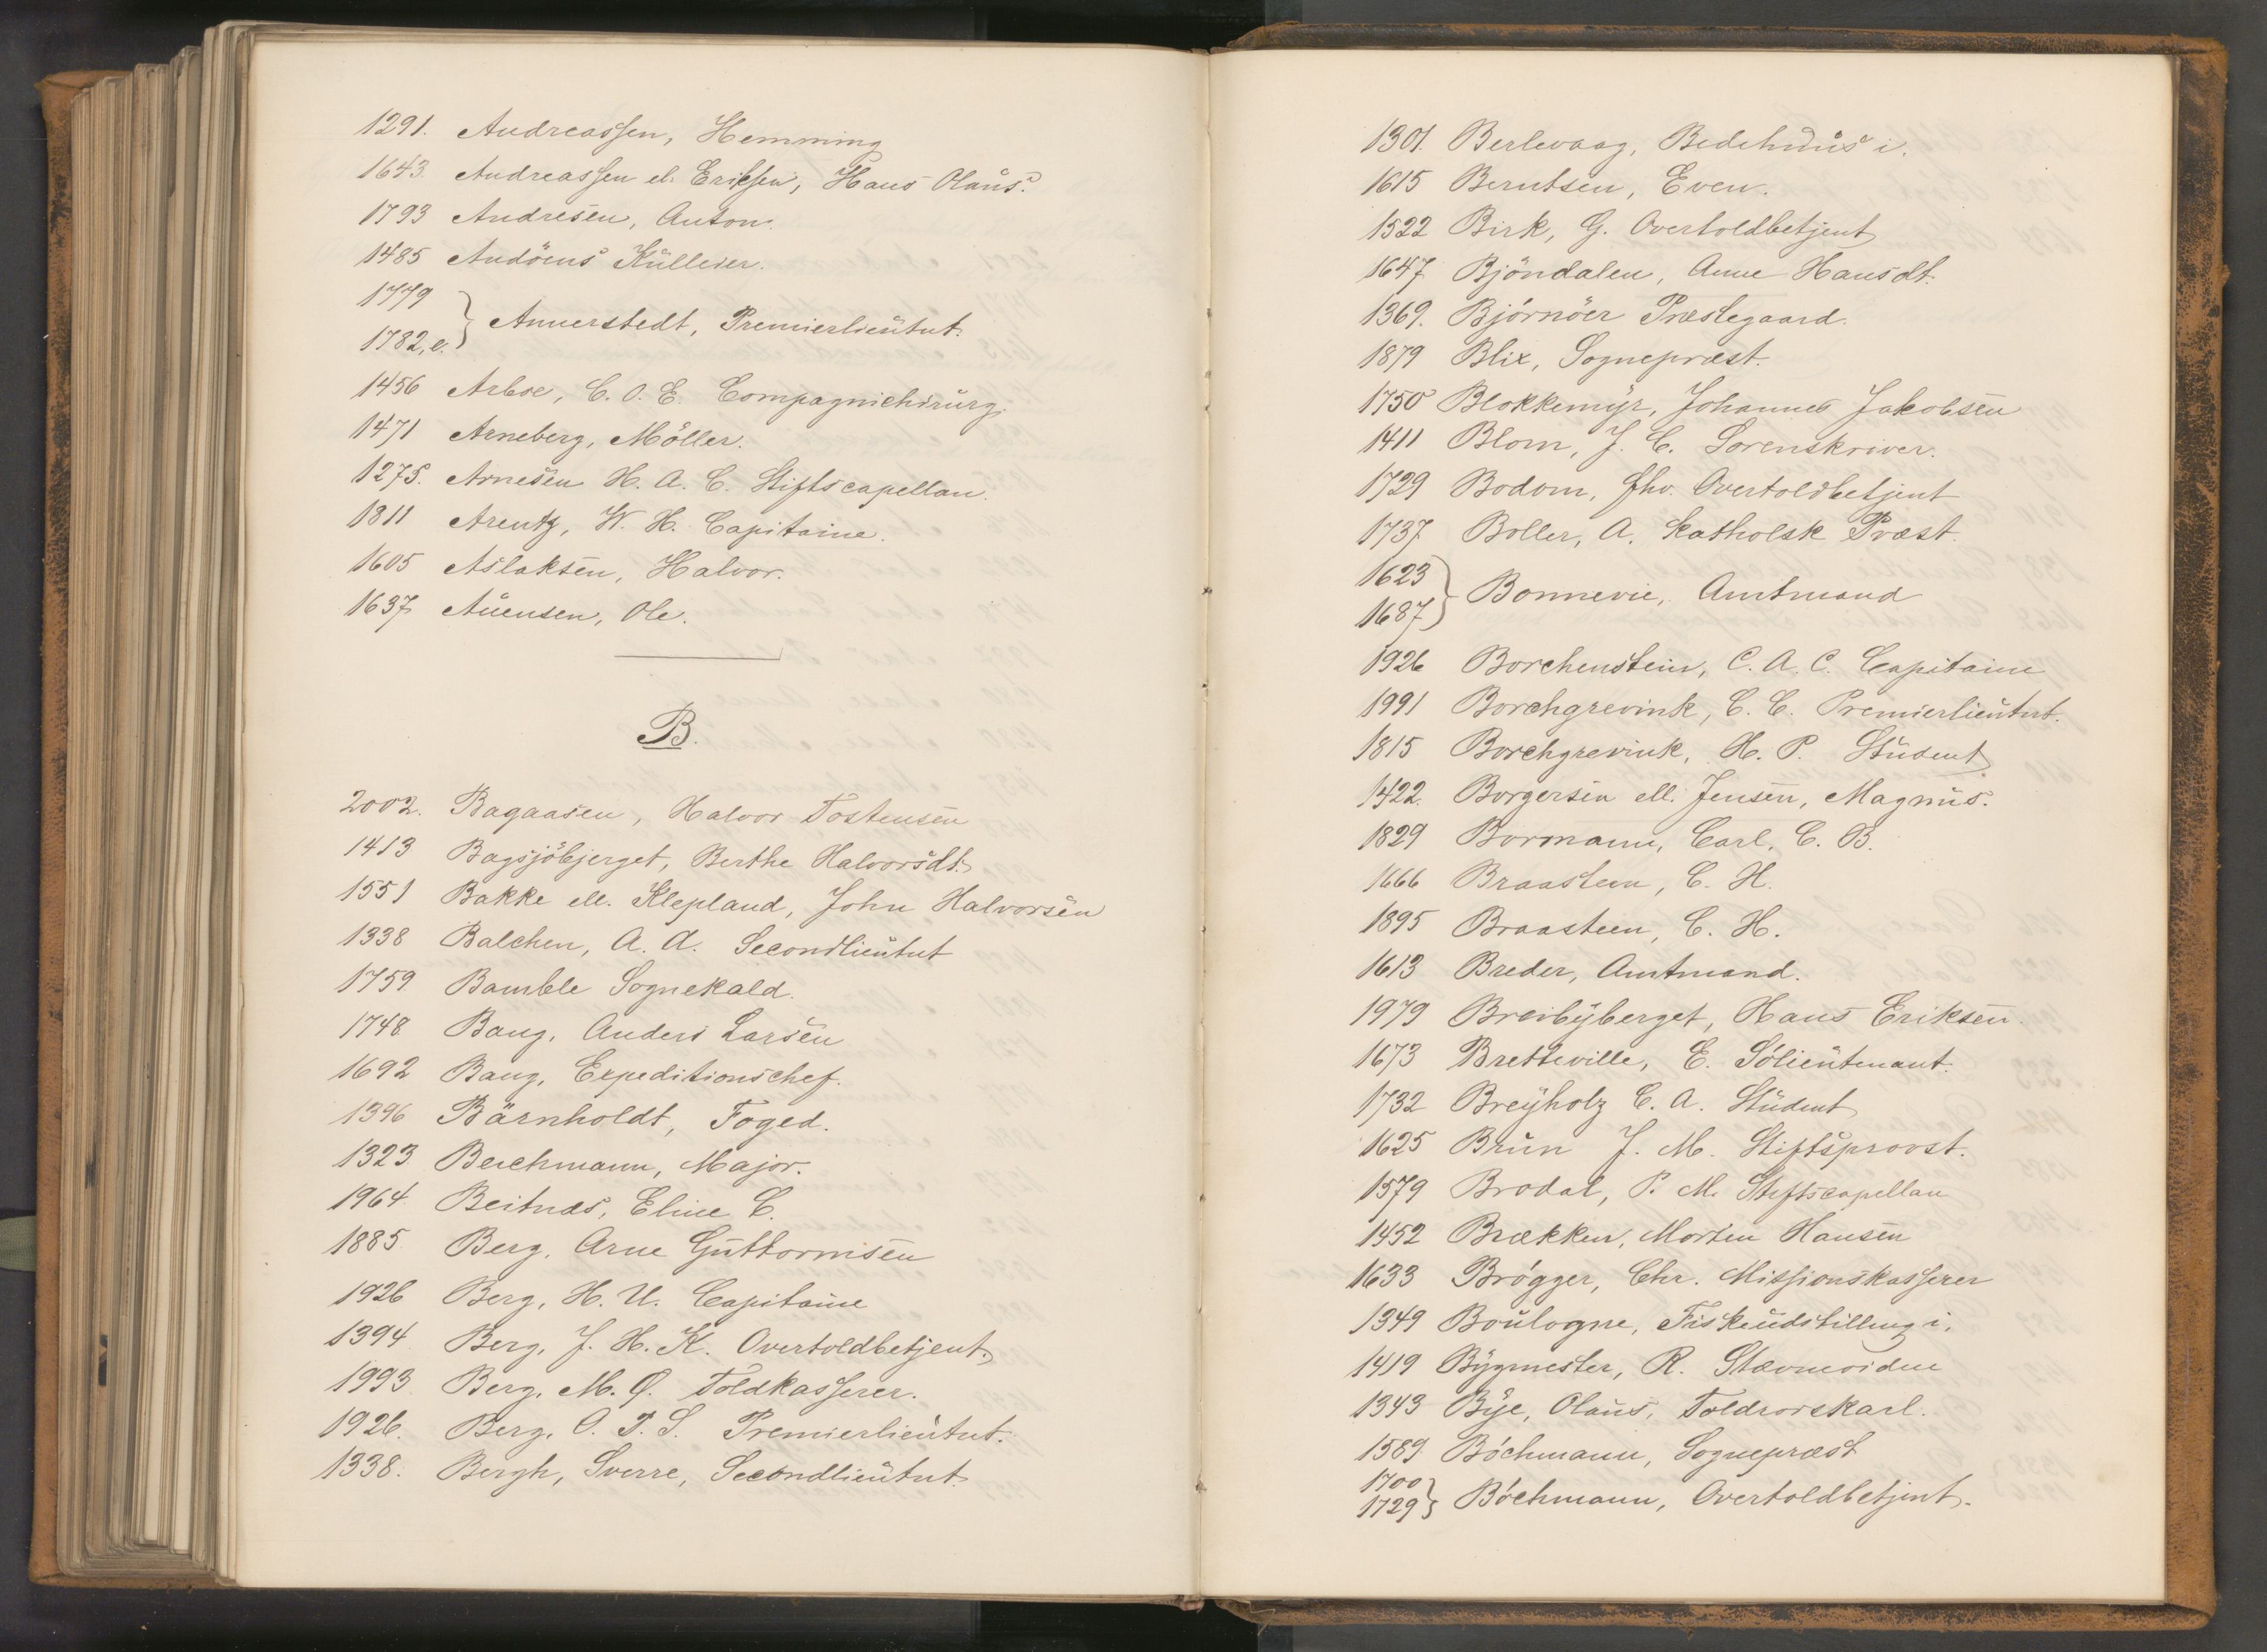 1291. Andreassen, Hemming
1643. Andreassen el. Eriksen, Hans Olaus.
1793 Andresen, Anton.
1485 Andöens Kulleier.
1779
1782, e. } Annerstedt, Premierlieutnt.
1456 Arboe, C. O. E. Compagnichirurg.
1471 Arneberg, Möller.
1275. Arnesen H. A. C. Stiftscapellan.
1811 Arentz, W. H. Capitaine.
1605 Aslaksen, Halvor.
1637 Auensen, Ole.
B.
2002. Bagaasen, Halvor Tostensen
1413 Bagsjöbjerget, Berthe Halvorsdt.
1551 Bakke ell. Klepland, John Halvorsen
1338 Balchen, A. A. Secondlieutnt
1759 Bamble Sognekald.
1748 Bang, Anders Larsen
1692 Bang, Expeditionschef.
1396 Bärnholdt, Foged.
1323. Beichmann, Major.
1964 Beitnæs, Eline C.
1885 Berg, Arne Guttormsen
1926 Berg, H. U. Capitaine
1394 Berg, J. H. K. Overtoldbetjent.
1993 Berg, M. Ø. Toldkasserer.
1926. Berg, O. T. S. Premierlieutnt.
1338. Bergh, Sverre, Secondlieutnt.
1301. Berlevaag, Bedehuus i.
1615 Berntsen, Even.
1522 Birk, G. Overtoldbetjent
1647 Bjöndalen, Anne Hansdt.
1369. Björnöer Præstegaard.
1879 Blix, Sognepræst.
1750 Blokkemyr, Johannes Jakobsen
1411 Blom, J. C. Sorenskriver.
1729 Bodom, fhv. Overtoldbetjent
1737 Boller, A. Katholsk Præst.
1623
1687 } Bonnevie, Amtmand
1926 Borchenstein, C. A. C. Capitaine
1991 Borchgrevink, C. C. Premierlieutnt.
1815 Borchgrevink, H. P. Student
1422. Borgersen ell. Jensen, Magnus.
1829 Bormann, Carl, C. B.
1666 Braasteen, C. H.
1895 Braasteen, C. H.
1613 Breder, Amtmand.
1979 Breibyberget, Hans Eriksen.
1673 Bretteville, E. Sölieutenant.
1732 Breyholz C. A. Student
1625 Brun J. M. Stiftsprovst.
1579 Brodal, P. M. Stiftscapellan
1452 Brækken, Morten Hansen
1633 Brögger, Chr. Missionskasserer
1349 Boulogne, Fiskeudstilling i.
1419 Bygmester, R. Stævneiden
1343 Bye, Olaus, Toldrorskarl.
1589 Böchmann, Sognepræst
1700
1729 } Böchmann, Overtoldbetjent.